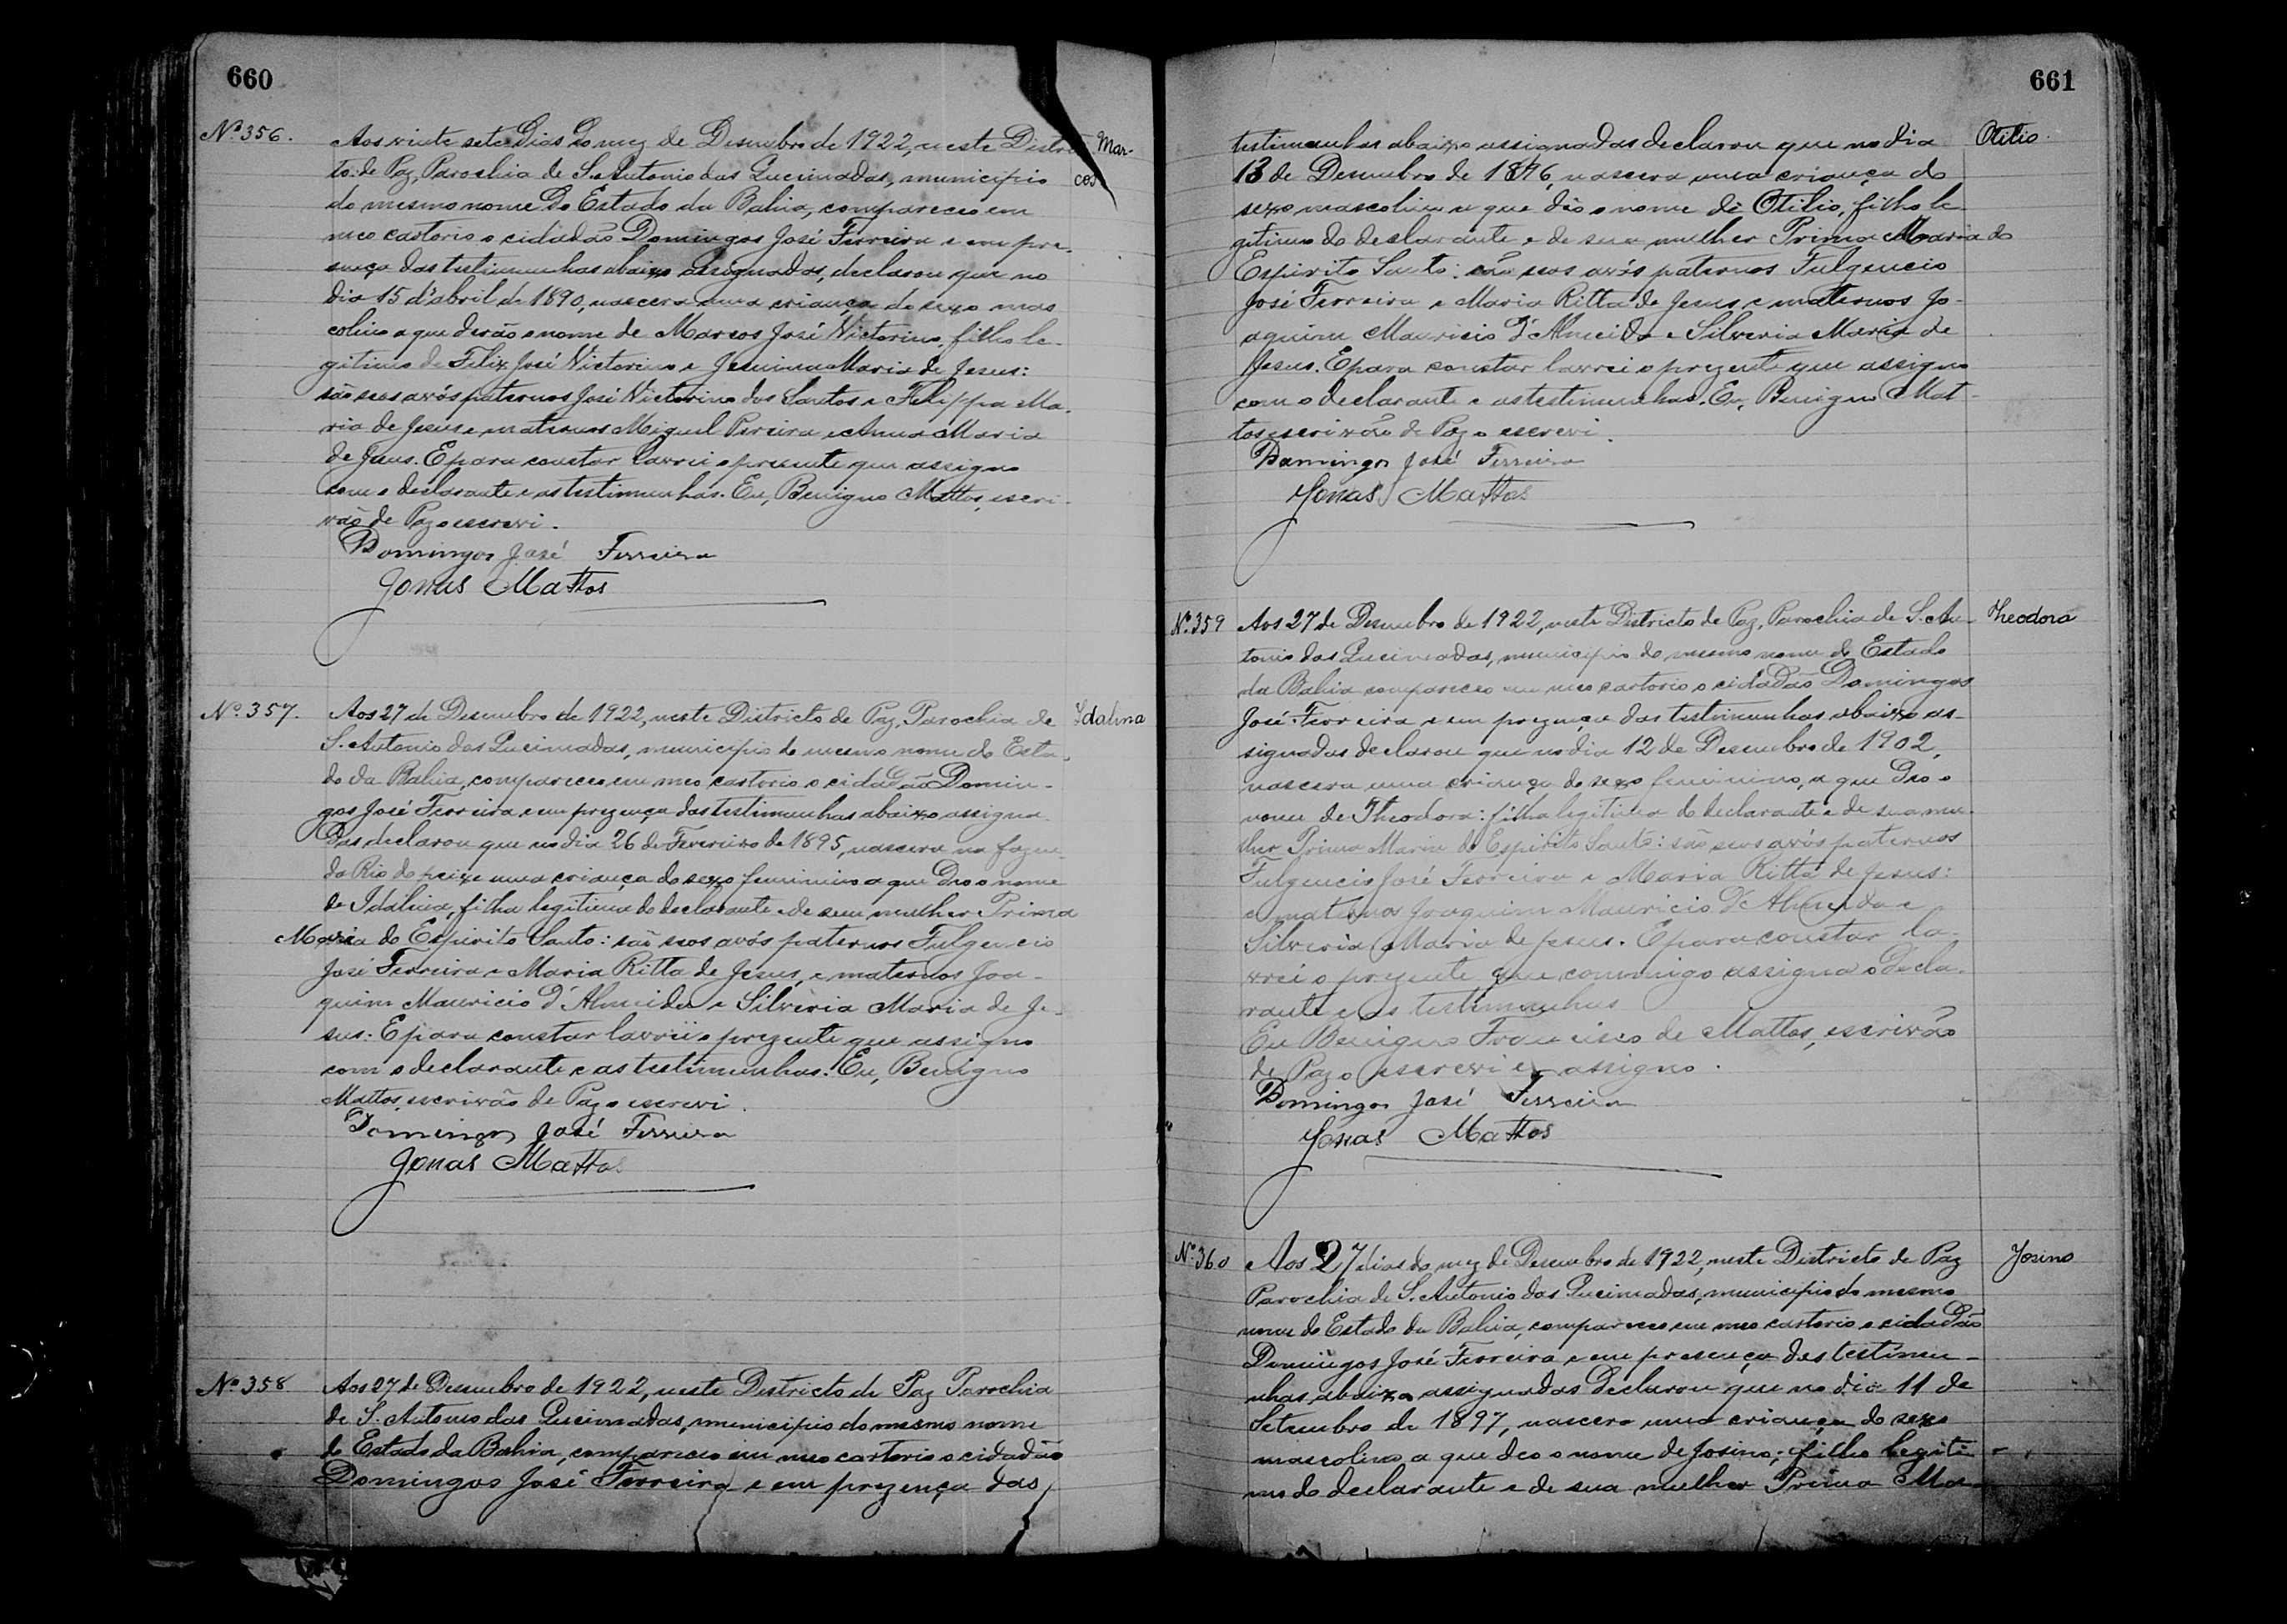 660
Nº 356.
Aos vinte sete dias do mez de Desembro de 1922, neste Distri
Mar-
cos
to de Paz, Parochia de S. Antonio das Queimadas, municipio
do mesmo nome do Estado da Bahia, compareceo em
meo cartorio o cidadão Domingos José Ferreira e em pre-
sença das testimunhas abaixo assignadas, declarou que no
dia 15 d'abril de 1890, nascera uma criança do sexo mas
colino a que derão o nome de Marcos José Victorino, filho le-
gitimo de Felix José Victorino e Jesuina Maria de Jesus:
são seos avós paternos José Victorino dos Santos e Felippa Ma-
ria de Jesus e maternos Miguel Pereira e Anna Maria
de Jesus. E para constar lavrei o presente que assigno
com o declarante e as testimunhas. Eu, Benigno Mattos, escri-
vão de Paz o escrevi.
Domingos José Ferreira
Jonas Mattos
Nº 357.
Aos 27 de Desembro de 1922, neste Districto de Paz, Parochia de
Idalina
S. Antonio das Queimadas, municipio do mesmo nome do Esta-
do da Bahia, compareceo em meo cartorio o cidadão Domin-
gos José Ferreira e em prezença das testimunhas abaixo assigna-
das declarou que no dia 26 de Fevereiro de 1895, nascera na fazen-
da Rio do peixe uma criança do sexo feminino a que deo o nome
de Idalina, filha legitima do declarante e de sua mulher Prima
Maria do Espirito Santo: são seos avós paternos Fulgencio
José Ferreira e Maria Ritta de Jesus, e maternos Joa-
quim Mauricio d'Almeida e Silveria Maria de Je-
sus. E para constar lavrei o prezente que assigno
com o declarante e as testimunhas. Eu, Benigno
Mattos, escrivão de Paz o escrevi.
Domingos José Ferreira
Jonas Mattos
Nº 358
Aos 27 de Desembro de 1922, neste Districto de Paz Parochia
de S. Antonio das Queimadas, municipio do mesmo nome
do Estado da Bahia, compareceo em meo cartorio o cidadão
Domingos José Ferreira e em prezença das
661
testimunhas abaixo assignadas declarou que no dia
Otilio.
13 de Desembro de 1896, nascera uma criança do
sexo mascolino a que deo o nome de Otilio, filho le-
gitimo do declarante e de sua mulher Prima Maria do
Espirito Santo: são seos avós paternos Fulgencio
José Ferreira e Maria Ritta de Jesus e maternos Jo-
aquim Mauricio d'Almeida e Silveria Maria de
Jesus. E para constar lavrei o prezente que assigno
com o declarante e as testimunhas. Eu, Benigno Mat-
tos escrivão de Paz o escrevi.
Domingos José Ferreira
Jonas Mattos
Nº 359
Aos 27 de Desembro de 1922, neste Districto de Paz, Parochia de S. An-
Theodora
tonio das Queimadas, municipio do mesmo nome do Estado
da Bahia compareceo em meo cartorio o cidadão Domingos
José Ferreira e em prezença das testimunhas abaixo as-
signadas declarou que no dia 12 de Desembro de 1902,
nascera uma criança do sexo feminino, a que deo o
nome de Theodora: filha legitima do declarante e de sua mu-
lher Prima Maria do Espirito Santo: são seos avós paternos
Fulgencio José Ferreira e Maria Ritta de Jesus:
e maternos Joaquim Mauricio d'Almeida e
Silveria Maria de Jesus. E para constar la-
vrei o prezente que commigo assigna o decla-
rante e as testimunhas
Eu Benigno Francisco de Mattos, escrivão
de Paz o escrevi e assigno.
Domingos José Ferreira
Jonas Mattos
Nº 360
Aos 27 dias do mez de Desembro de 1922, neste Districto de Paz
Josino
Parochia de S. Antonio das Queimadas, municipio do mesmo
nome do Estado da Bahia, compareceo em meo cartorio o cidadão
Domingos José Ferreira e em presença das testimu-
nhas abaixo assignadas declarou que no dia 11 de
Setembro de 1897, nascera uma criança do sexo
mascolino a que deo o nome de Josino; filho legiti-
mo do declarante e de sua mulher Prima Ma-